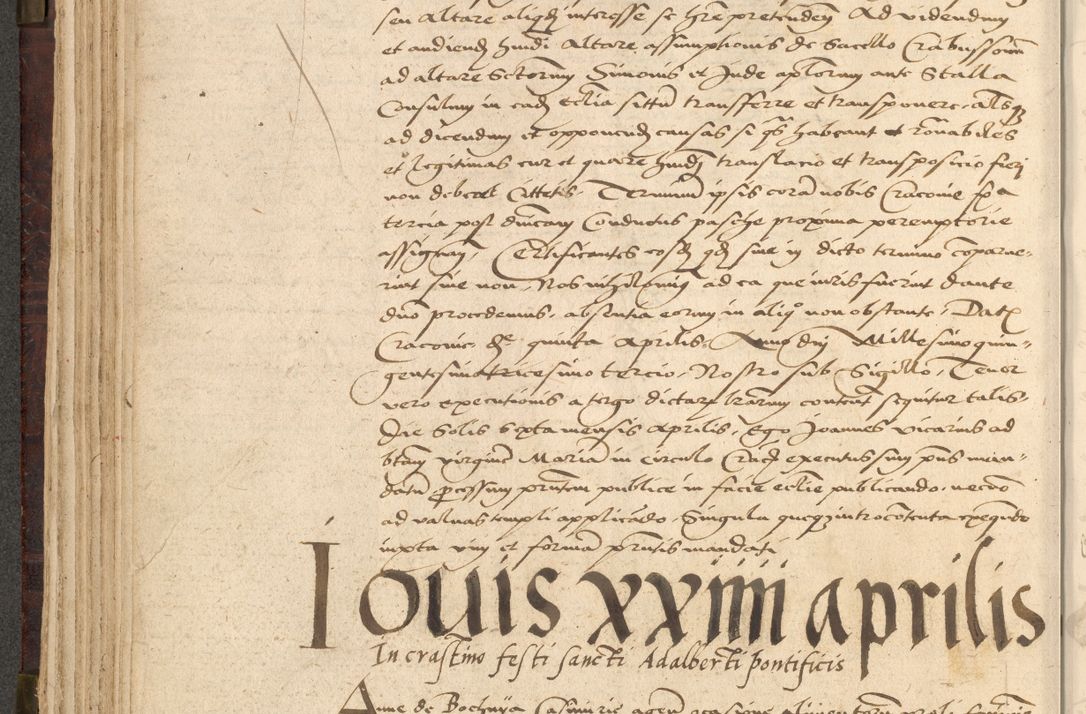 seu Altare aliqd interesse se hre pretenden Ad videndum
et audiend hmdi Altare assumptionis de Sacello Crabussorum
ad altare Sctorum Simonis et Jude aplorum ante Stalla
Consulum in eadem Ecclia situm transfferre et transponere, alsq
ad dicendum et opponend causas si qs habeant ronabiles
et legitimas cur et quare hmdi translacio et transposicio fieri
non debeat Cittetis. Terminum ipsis coram nobis Cracovie
tercia post dnicam Conductus pasche proxima peremptorie
assignam, Certificantes eosd qd sive in dicto termino compare-
rint sive non, Nos nihilominus ad ea que iuris fuerint dante
dno procedemus, absentia eorum in aliq non obstante, Dat
Cracovie die quinta Aprilis, Anno dni Millesimo quin-
gentesimo tricesimo tercio, Nostro sub Sigillo, Tenor
vero executionis a tergo dictar lrarum content sequitur talis
Die Solis sexta mensis Aprilis, Ego Joannes vicarius ad
btam virginem Mariam in circulo Crac executus sum pns man-
datum processum prntem publice in facie ecclie publicando, necno
ad valvas templi applicado, Singula queq introcontenta exequedo
iuxta vim et formam prntis mandati
Iouis xxiiii aprilis
In crastino festi sancti Adalberti pontificis
Anne de Bochnya Casimirie agen occasione alimentorum